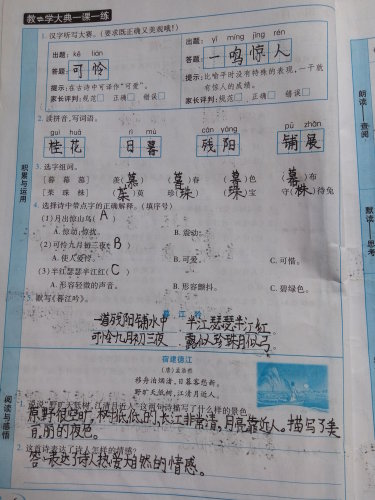 教与学大典一课一练
1.汉字听写大赛。(要求既正确又美观哦!)
出题: kě lián
答题: 可怜
提示:在古诗中可译作"可爱"。
家长评判:规范 正确 错误
出题: yī míng jīng rén
答题: 一鸣惊人
提示:比喻平时没有特殊的表现,一干就有惊人的成绩。
家长评判:规范 正确 错误
2.读拼音,写词语。
guì huā rì mù cán yáng pū zhǎn
桂花 日暮 残阳 铺展
3.选字组词。
4.选择诗中带点字的正确解释。(填序号)
(1)月出惊山鸟( A )
A.惊动;惊扰。 B.震动。
(2)可怜九月初三夜( B )
A.使人爱怜。 B.可爱。 C.可惜。
(3)半江瑟瑟半江红( C )
A.形容轻微的声音。 B.形容颤抖。 C.碧绿色。
5.默写《暮江吟》。
暮江吟
一道残阳铺水中 半江瑟瑟半江红
可怜九月初三夜 珍珠月似弓
宿建德江
(唐)孟浩然
移舟泊烟渚,日暮客愁新。
野旷天低树,江清月近人。
1.说说"野旷天低树,江清月近人"这两句诗描写了什么样的景色。
原野很空旷,树低低的,长江非常清,月亮靠近人。描写了美丽的夜色。
2.这首诗表达了诗人怎样的情感?
答:表达了诗人热爱大自然的情感。
积累与运用
阅读与感悟
朗读—查阅
默读—思考